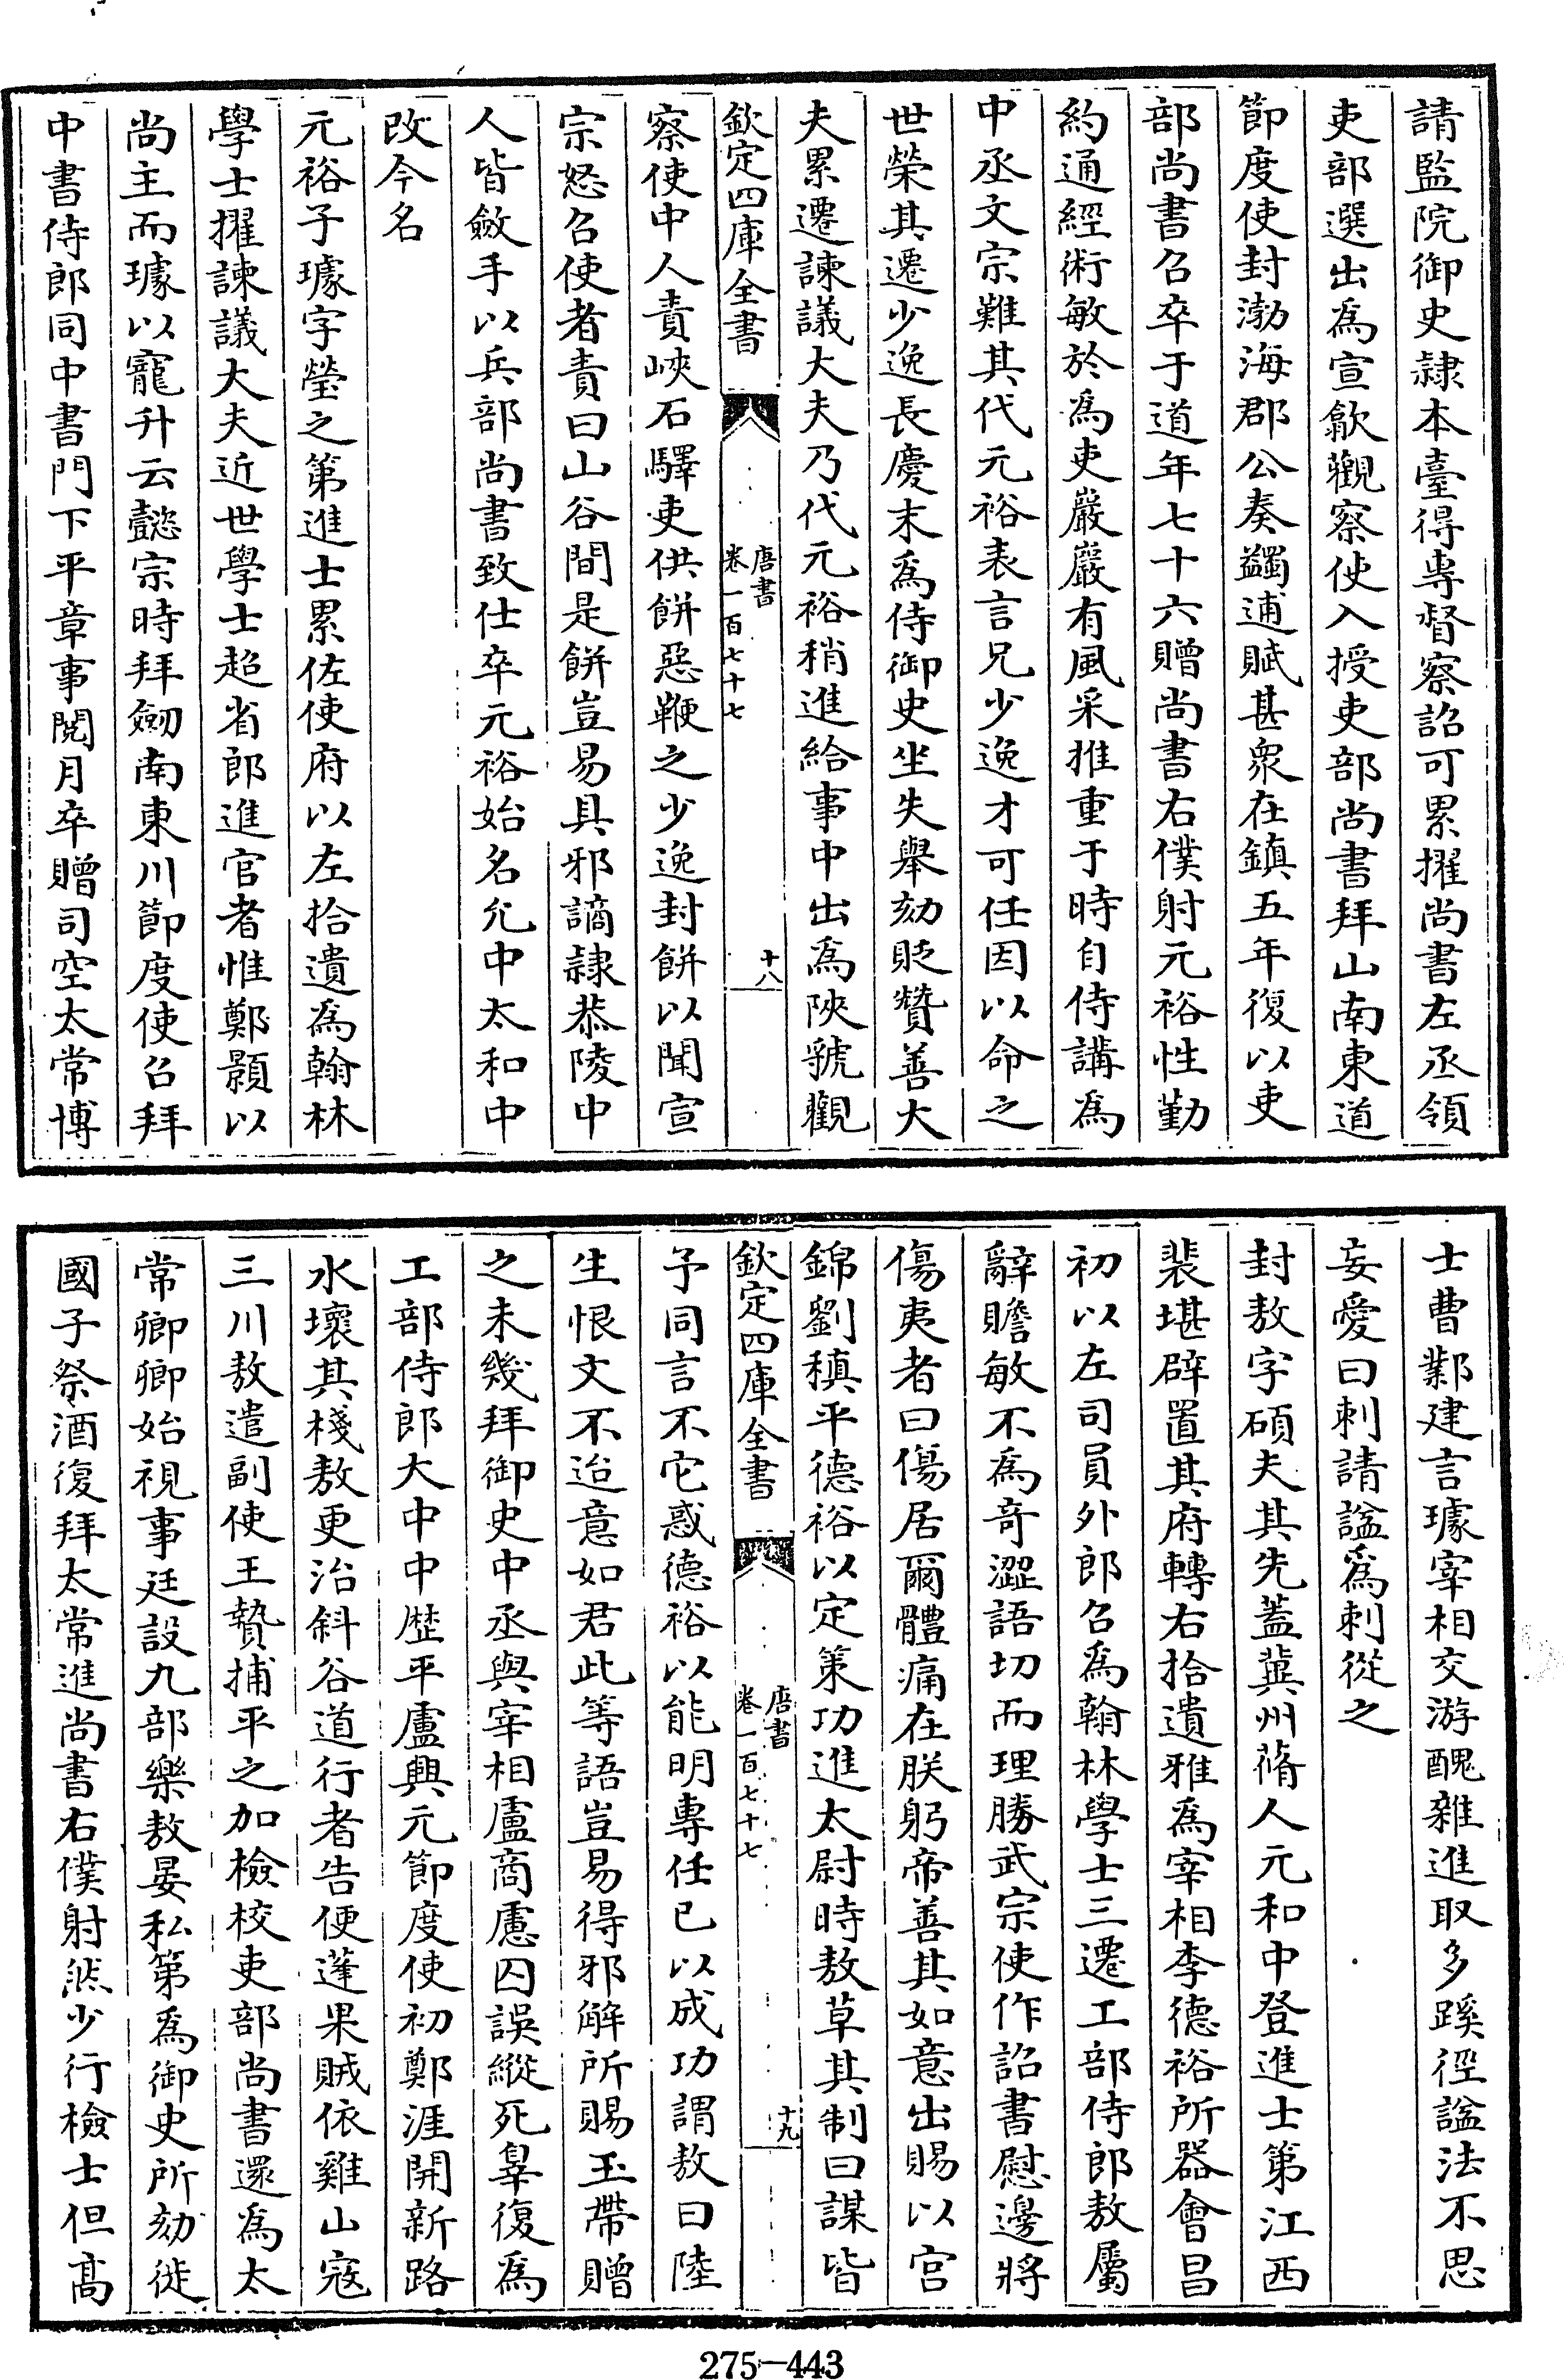 請監院御史隷本臺得專督察詔可累擢尚書左丞領
吏部選出為宣歙觀察使入授吏部尚書拜山南東道
節度使封渤海郡公奏蠲逋賦甚衆在鎮五年復以吏
部尚書召卒于道年七十六贈尚書右僕射元裕性勤
約通經術敏於為吏嚴嚴有風采推重于時自侍講為
中丞文宗難其代元裕表言兄少逸才可任因以命之
世榮其遷少逸長慶末為侍御史坐失舉劾貶贊善大
夫累遷諫議大夫乃代元裕稍進給事中出為陜虢觀
欽定四庫全書
唐書
卷一百七十七
十八
察使中人責峽石驛吏供餅惡鞭之少逸封餅以聞宣
宗怒召使者責曰山谷間是餅豈易具邪謫隷恭陵中
人皆斂手以兵部尚書致仕卒元裕始名允中太和中
改今名
元裕子璩字瑩之第進士累佐使府以左拾遺為翰林
學士擢諫議大夫近世學士超省郎進官者惟鄭顥以
尚主而璩以寵升云懿宗時拜劒南東川節度使召拜
中書侍郎同中書門下平章事閱月卒贈司空太常博
士曹鄴建言璩宰相交游醜雜進取多蹊徑諡法不思
妄愛曰刺請諡為刺從之
封敖字碩夫其先蓋冀州蓨人元和中登進士第江西
裴堪辟置其府轉右拾遺雅為宰相李德裕所器會昌
初以左司員外郎召為翰林學士三遷工部侍郎敖屬
辭贍敏不為奇澀語切而理勝武宗使作詔書慰邊將
傷夷者曰傷居爾體痛在朕躬帝善其如意出賜以宫
錦劉稹平德裕以定策功進太尉時敖草其制曰謀皆
欽定四庫全書
唐書
卷一百七十七
十九
予同言不它惑德裕以能明專任已以成功謂敖曰陸
生恨文不迨意如君此等語豈易得邪解所賜玉帶贈
之未幾拜御史中丞與宰相盧商慮囚誤縱死辠復為
工部侍郎大中中歴平盧興元節度使初鄭涯開新路
水壞其棧敖更治斜谷道行者告便蓬果賊依雞山寇
三川敖遣副使王贄捕平之加檢校吏部尚書還為太
常卿卿始視事廷設九部樂敖宴私第為御史所劾徙
國子祭酒復拜太常進尚書右僕射然少行檢士但高
275-443